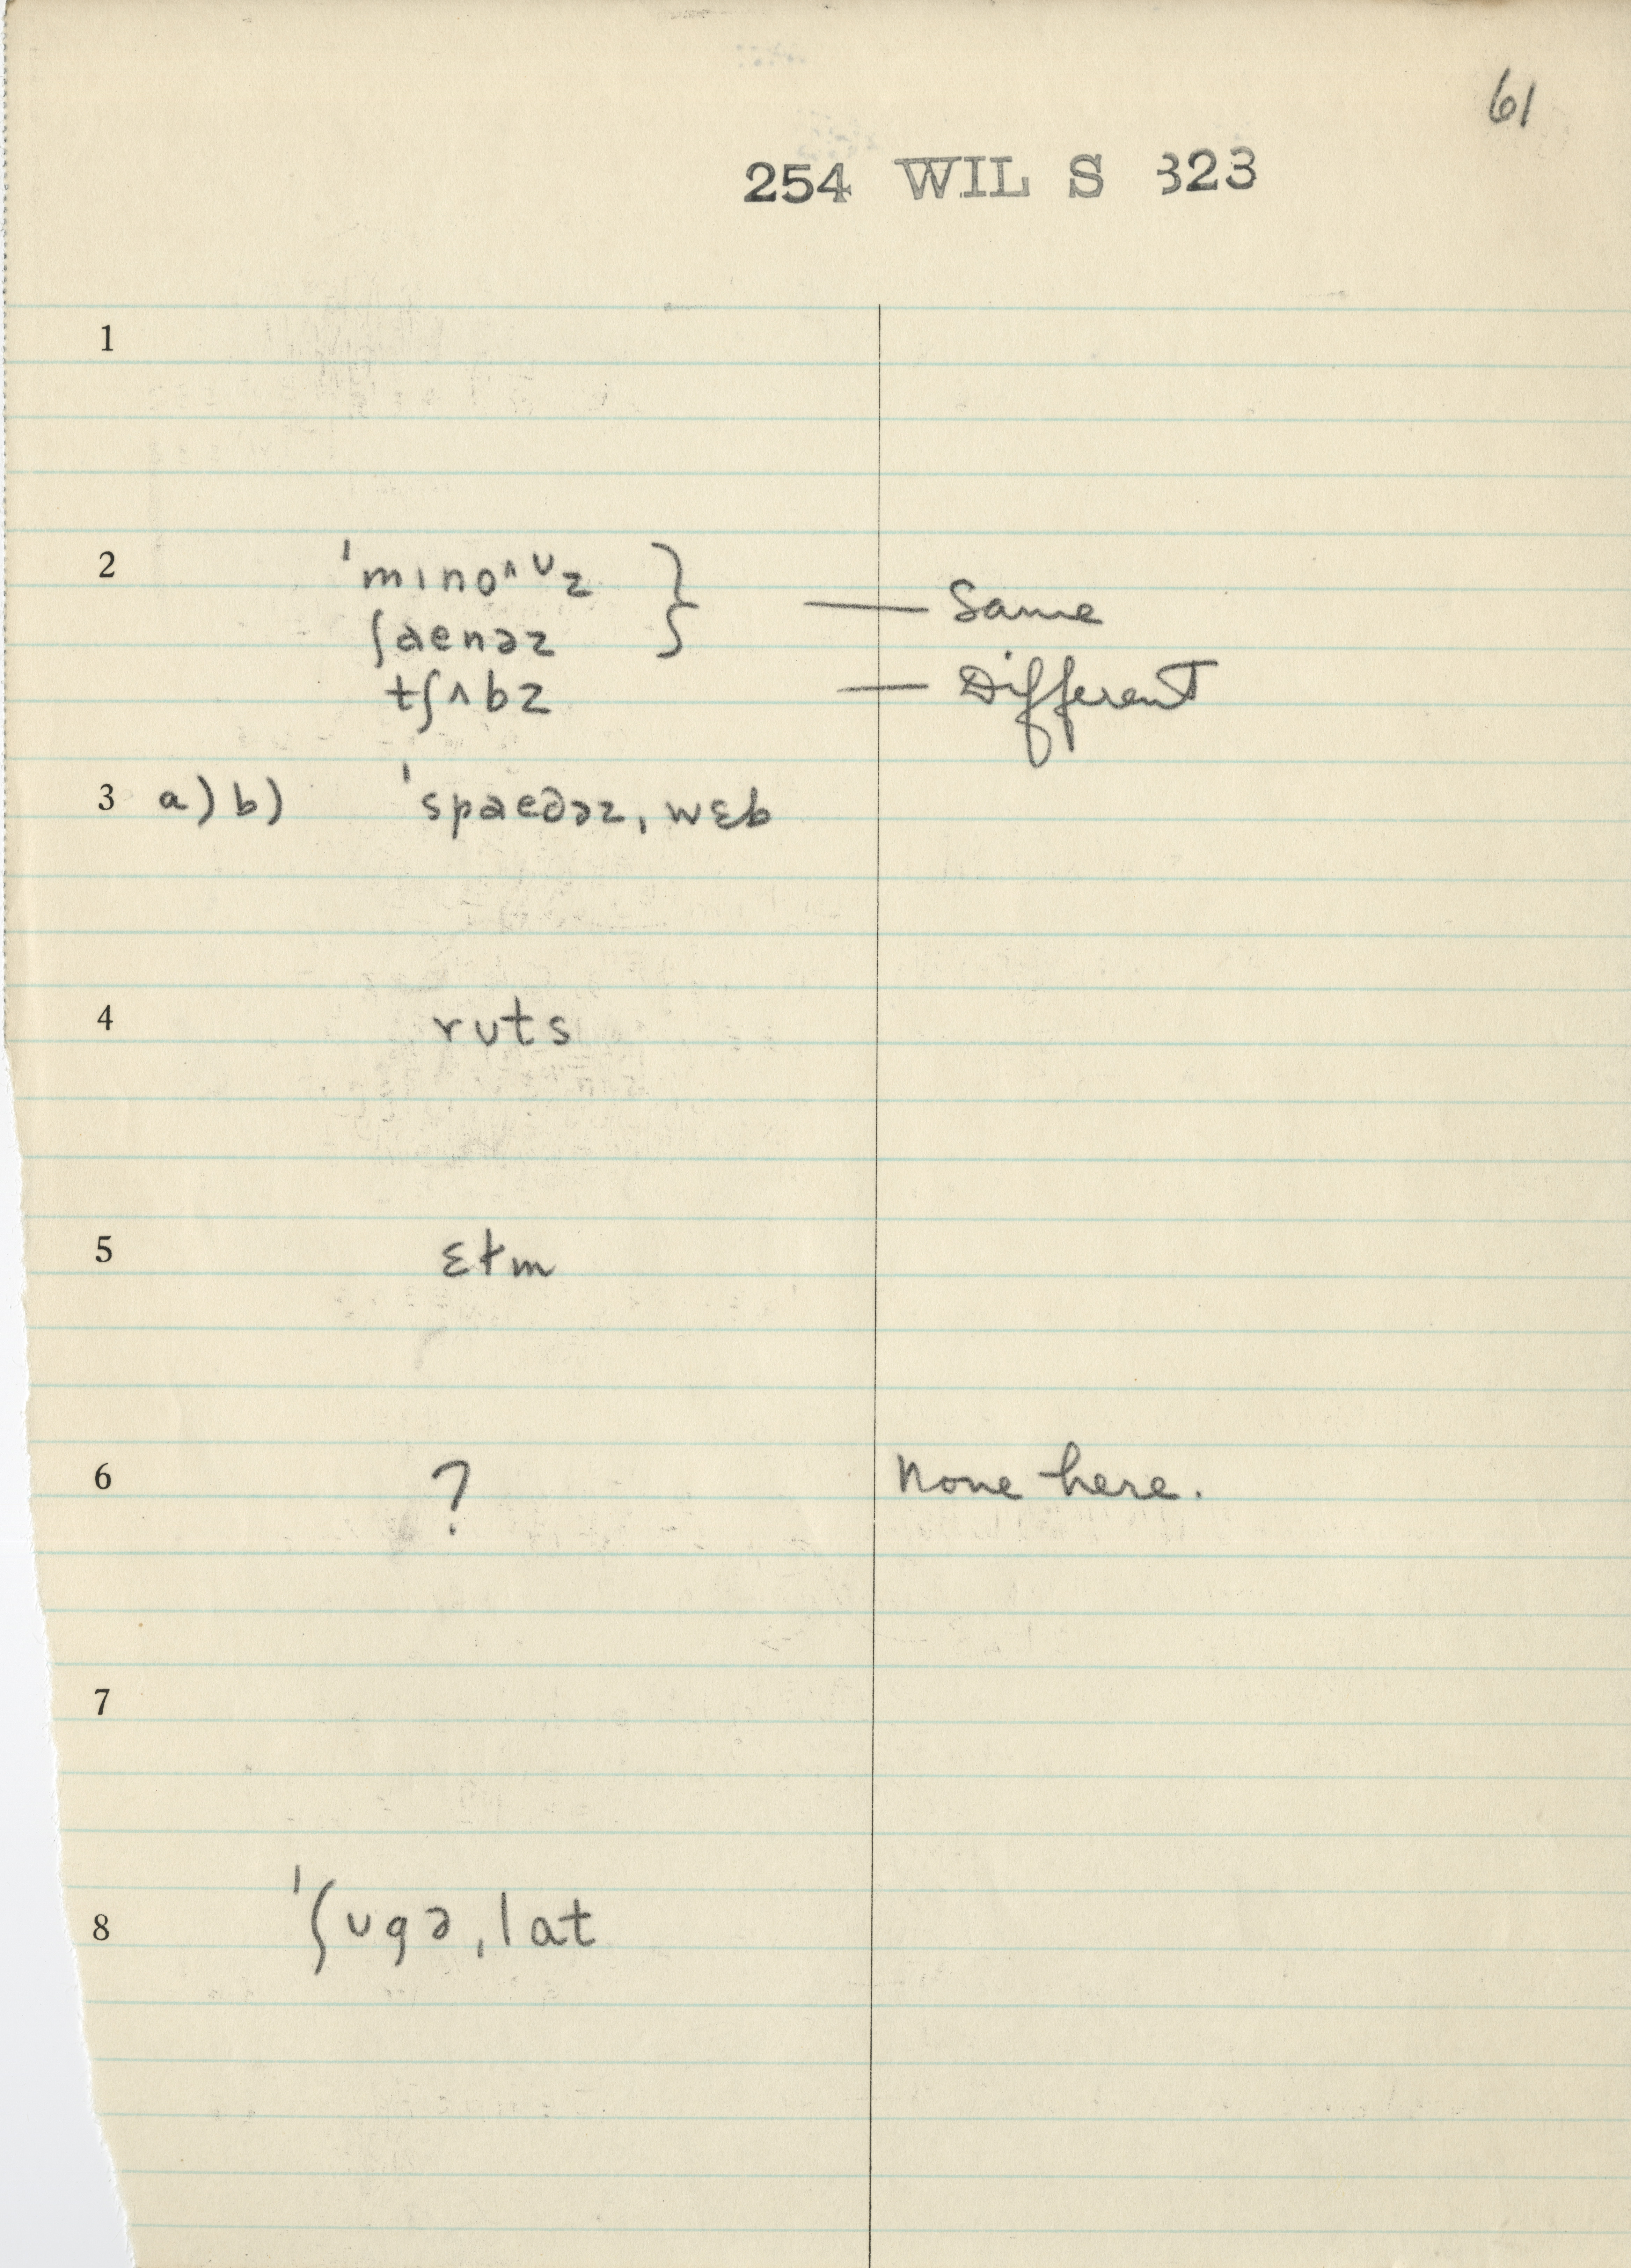 61
254 WIL S 323
1
2 'mino^ʊz } — Same
ʃaenəz
tʃʌbz — Different
3 a) b) 'spaedəz, wɛb
4 ruts
5 ɛtm
6 ? None here.
7
8 'ʃʊgə, lat